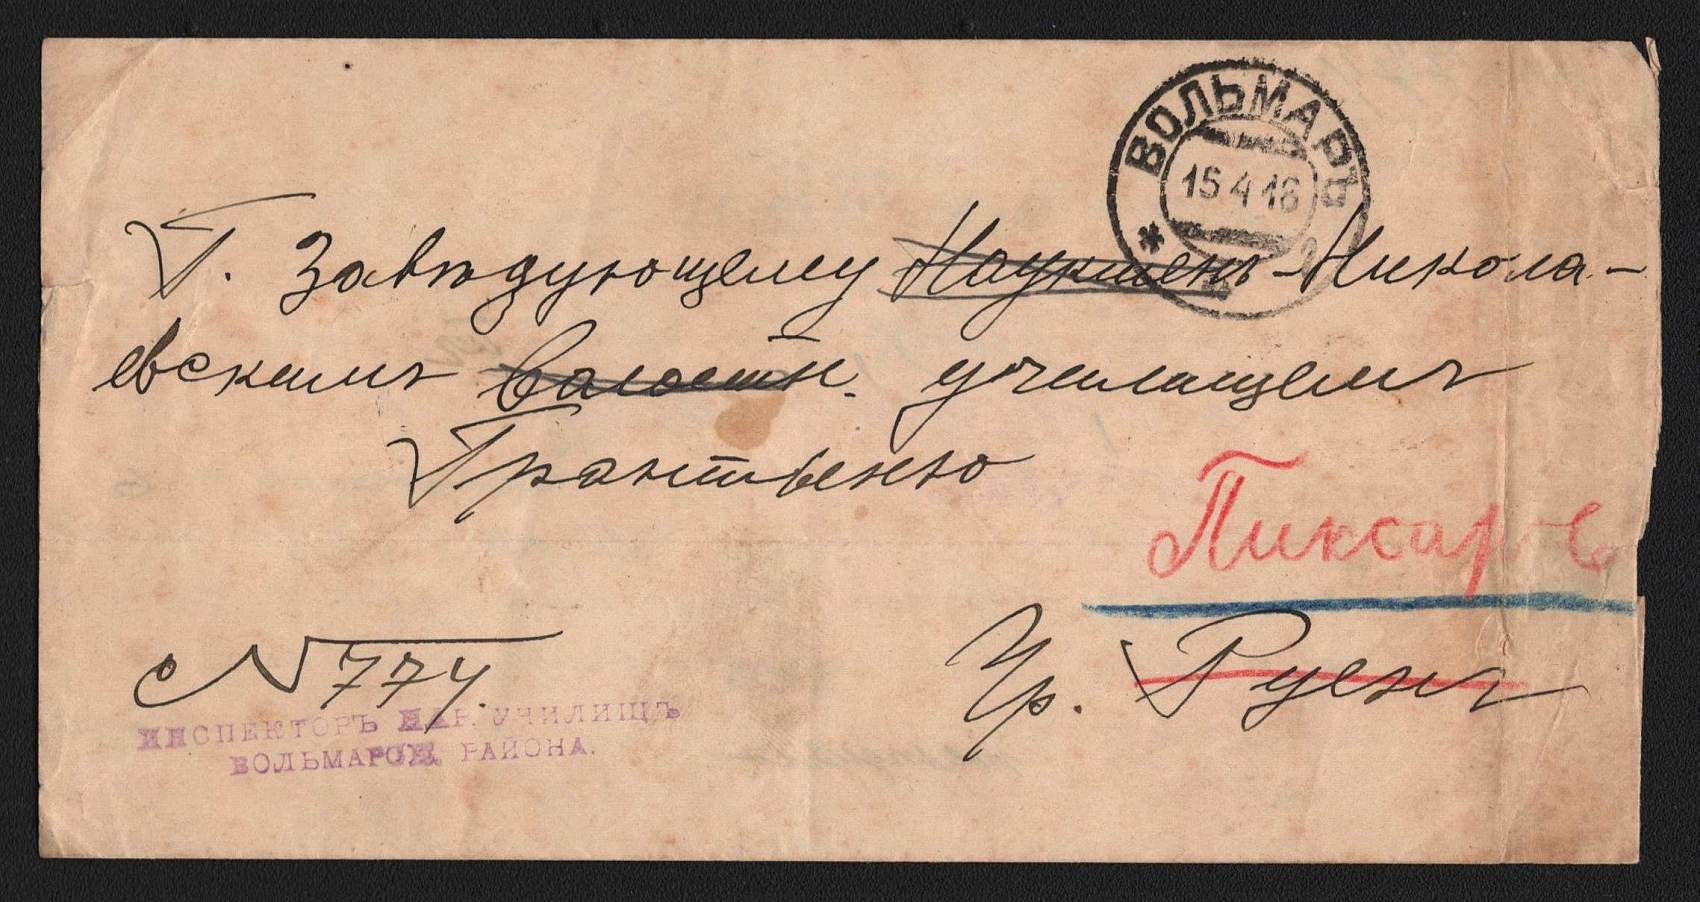 ВОЛЬМАРЪ
15 4 16
Г. Завѣдующему Наукшенъ-Никола-
евскимъ волостн. училищемъ
Грантыню
Пиксар
чр. Руенъ
№ 774.
ИНСПЕКТОРЪ НАР. УЧИЛИЩЪ
ВОЛЬМАРСК. РАЙОНА.